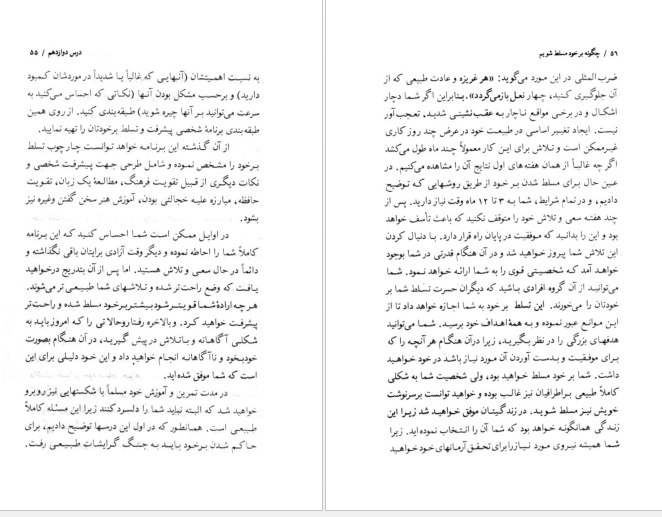 درس دوازدهم / ۵۵
به نسبت اهمیتشان (آنهایی که غالباً یا شدیداً در موردشان کمبود
دارید) و برحسب مشکل بودن آنها (نکاتی که احساس می‌کنید به
سرعت می‌توانید بر آنها چیره شوید) طبقه‌بندی کنید. از روی همین
طبقه‌بندی برنامهٔ شخصی پیشرفت و تسلط برخودتان را تهیه نمایید.
از آن گذشته این برنامه خواهد توانست چارچوب تسلط
برخود را مشخص نموده و شامل طرحی جهت پیشرفت شخصی و
نکات دیگری از قبیل تقویت فرهنگ، مطالعهٔ یک زبان، تقویت
حافظه، مبارزه علیه خجالتی بودن، آموزش هنر سخن گفتن وغیره نیز
بشود.
در اوایل ممکن است شما احساس کنید که این برنامه
کاملاً شما را احاطه نموده و دیگر وقت آزادی برایتان باقی نگذاشته و
دائماً در حال سعی و تلاش هستید. اما پس از آن بتدریج درخواهید
یافت که وضع راحت‌تر شده و تلاشهای شما طبیعی‌تر می‌شوند.
هرچه ارادهٔ شما قویتر شود بیشتر برخود مسلط شده و راحت‌تر
پیشرفت خواهید کرد. وبالاخره رفتار وحالاتی را که امروز باید به
شکلی آگاهانه و باتلاش در پیش گیرید، در آن هنگام بصورت
خودبخود و ناآگاهانه انجام خواهید داد و این خود دلیلی برای این
است که شما موفق شده‌اید.
در مدت تمرین و آموزش خود مسلماً با شکستهایی نیز روبرو
خواهید شد که البته نباید شما را دلسرد کنند زیرا این مسئله کاملاً
طبیعی است. همانطور که در اول این درسها توضیح دادیم، برای
حاکم شدن برخود باید به جنگ گرایشات طبیعی رفت.
۵۶ / چگونه بر خود مسلط شویم
ضرب‌المثلی در این مورد می‌گوید: «هر غریزه و عادت طبیعی که از
آن جلوگیری کنید، چهار نعل بازمی‌گردد». بنابراین اگر شما دچار
اشکال و در برخی مواقع ناچار به عقب‌نشینی شدید، تعجب‌آور
نیست. ایجاد تغییر اساسی در طبیعت خود در عرض چند روز کاری
غیرممکن است و تلاش برای این کار معمولاً چند ماه طول می‌کشد
اگر چه غالباً از همان هفته‌های اول نتایج آن را مشاهده می‌کنیم. در
عین حال برای مسلط شدن بر خود از طریق روشهایی که توضیح
دادیم، و در تمام شرایط، شما به ۳ تا ۱۲ ماه وقت نیاز دارید. پس از
چند هفته سعی و تلاش خود را متوقف نکنید که باعث تأسف خواهد
بود و این را بدانید که موفقیت در پایان راه قرار دارد. با دنبال کردن
این تلاش شما پیروز خواهید شد و در آن هنگام قدرتی در شما بوجود
خواهد آمد که شخصیتی قوی را به شما ارائه خواهد نمود. شما
می‌توانید از آن گروه افرادی باشید که دیگران حسرت تسلط شما بر
خودتان را می‌خورند. این تسلط بر خود به شما اجازه خواهد داد تا از
این موانع عبور نموده و به همهٔ اهداف خود برسید. شما می‌توانید
هدفهای بزرگی را در نظر بگیرید، زیرا در آن هنگام هر آنچه را که
برای موفقیت و بدست آوردن آن مورد نیاز باشد در خود خواهید
داشت. شما بر خود مسلط خواهید بود، ولی شخصیت شما به شکلی
کاملاً طبیعی براطرافیان نیز غالب بوده و خواهید توانست برسرنوشت
خویش نیز مسلط شوید. در زندگیتان موفق خواهید شد زیرا این
زندگی همانگونه خواهد بود که شما آن را انتخاب نموده‌اید. زیرا
شما همیشه نیروی مورد نیاز را برای تحقق آرمانهای خود خواهید